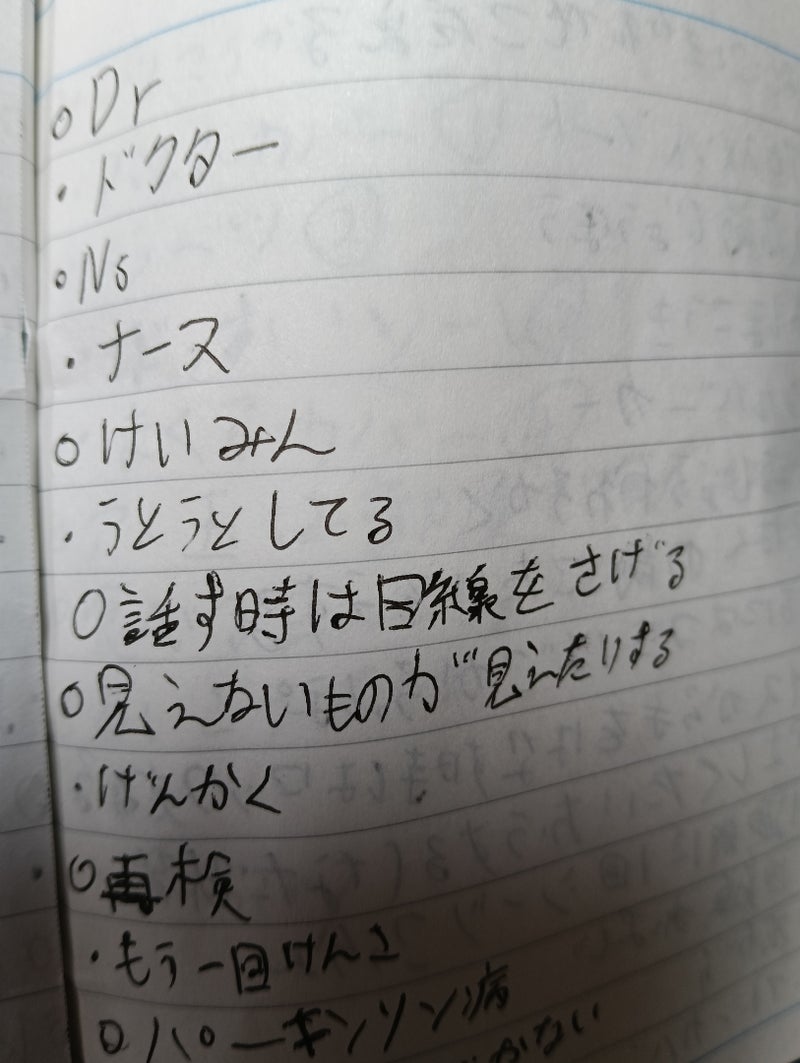 ○Dr
・ドクター
○Ns
・ナース
○けいみん
・うとうとしてる
○話す時は目線をさげる
○見えないものが見えたりする
・げんかく
○再検
・もう一回けんさ
○パーキンソン病
かない